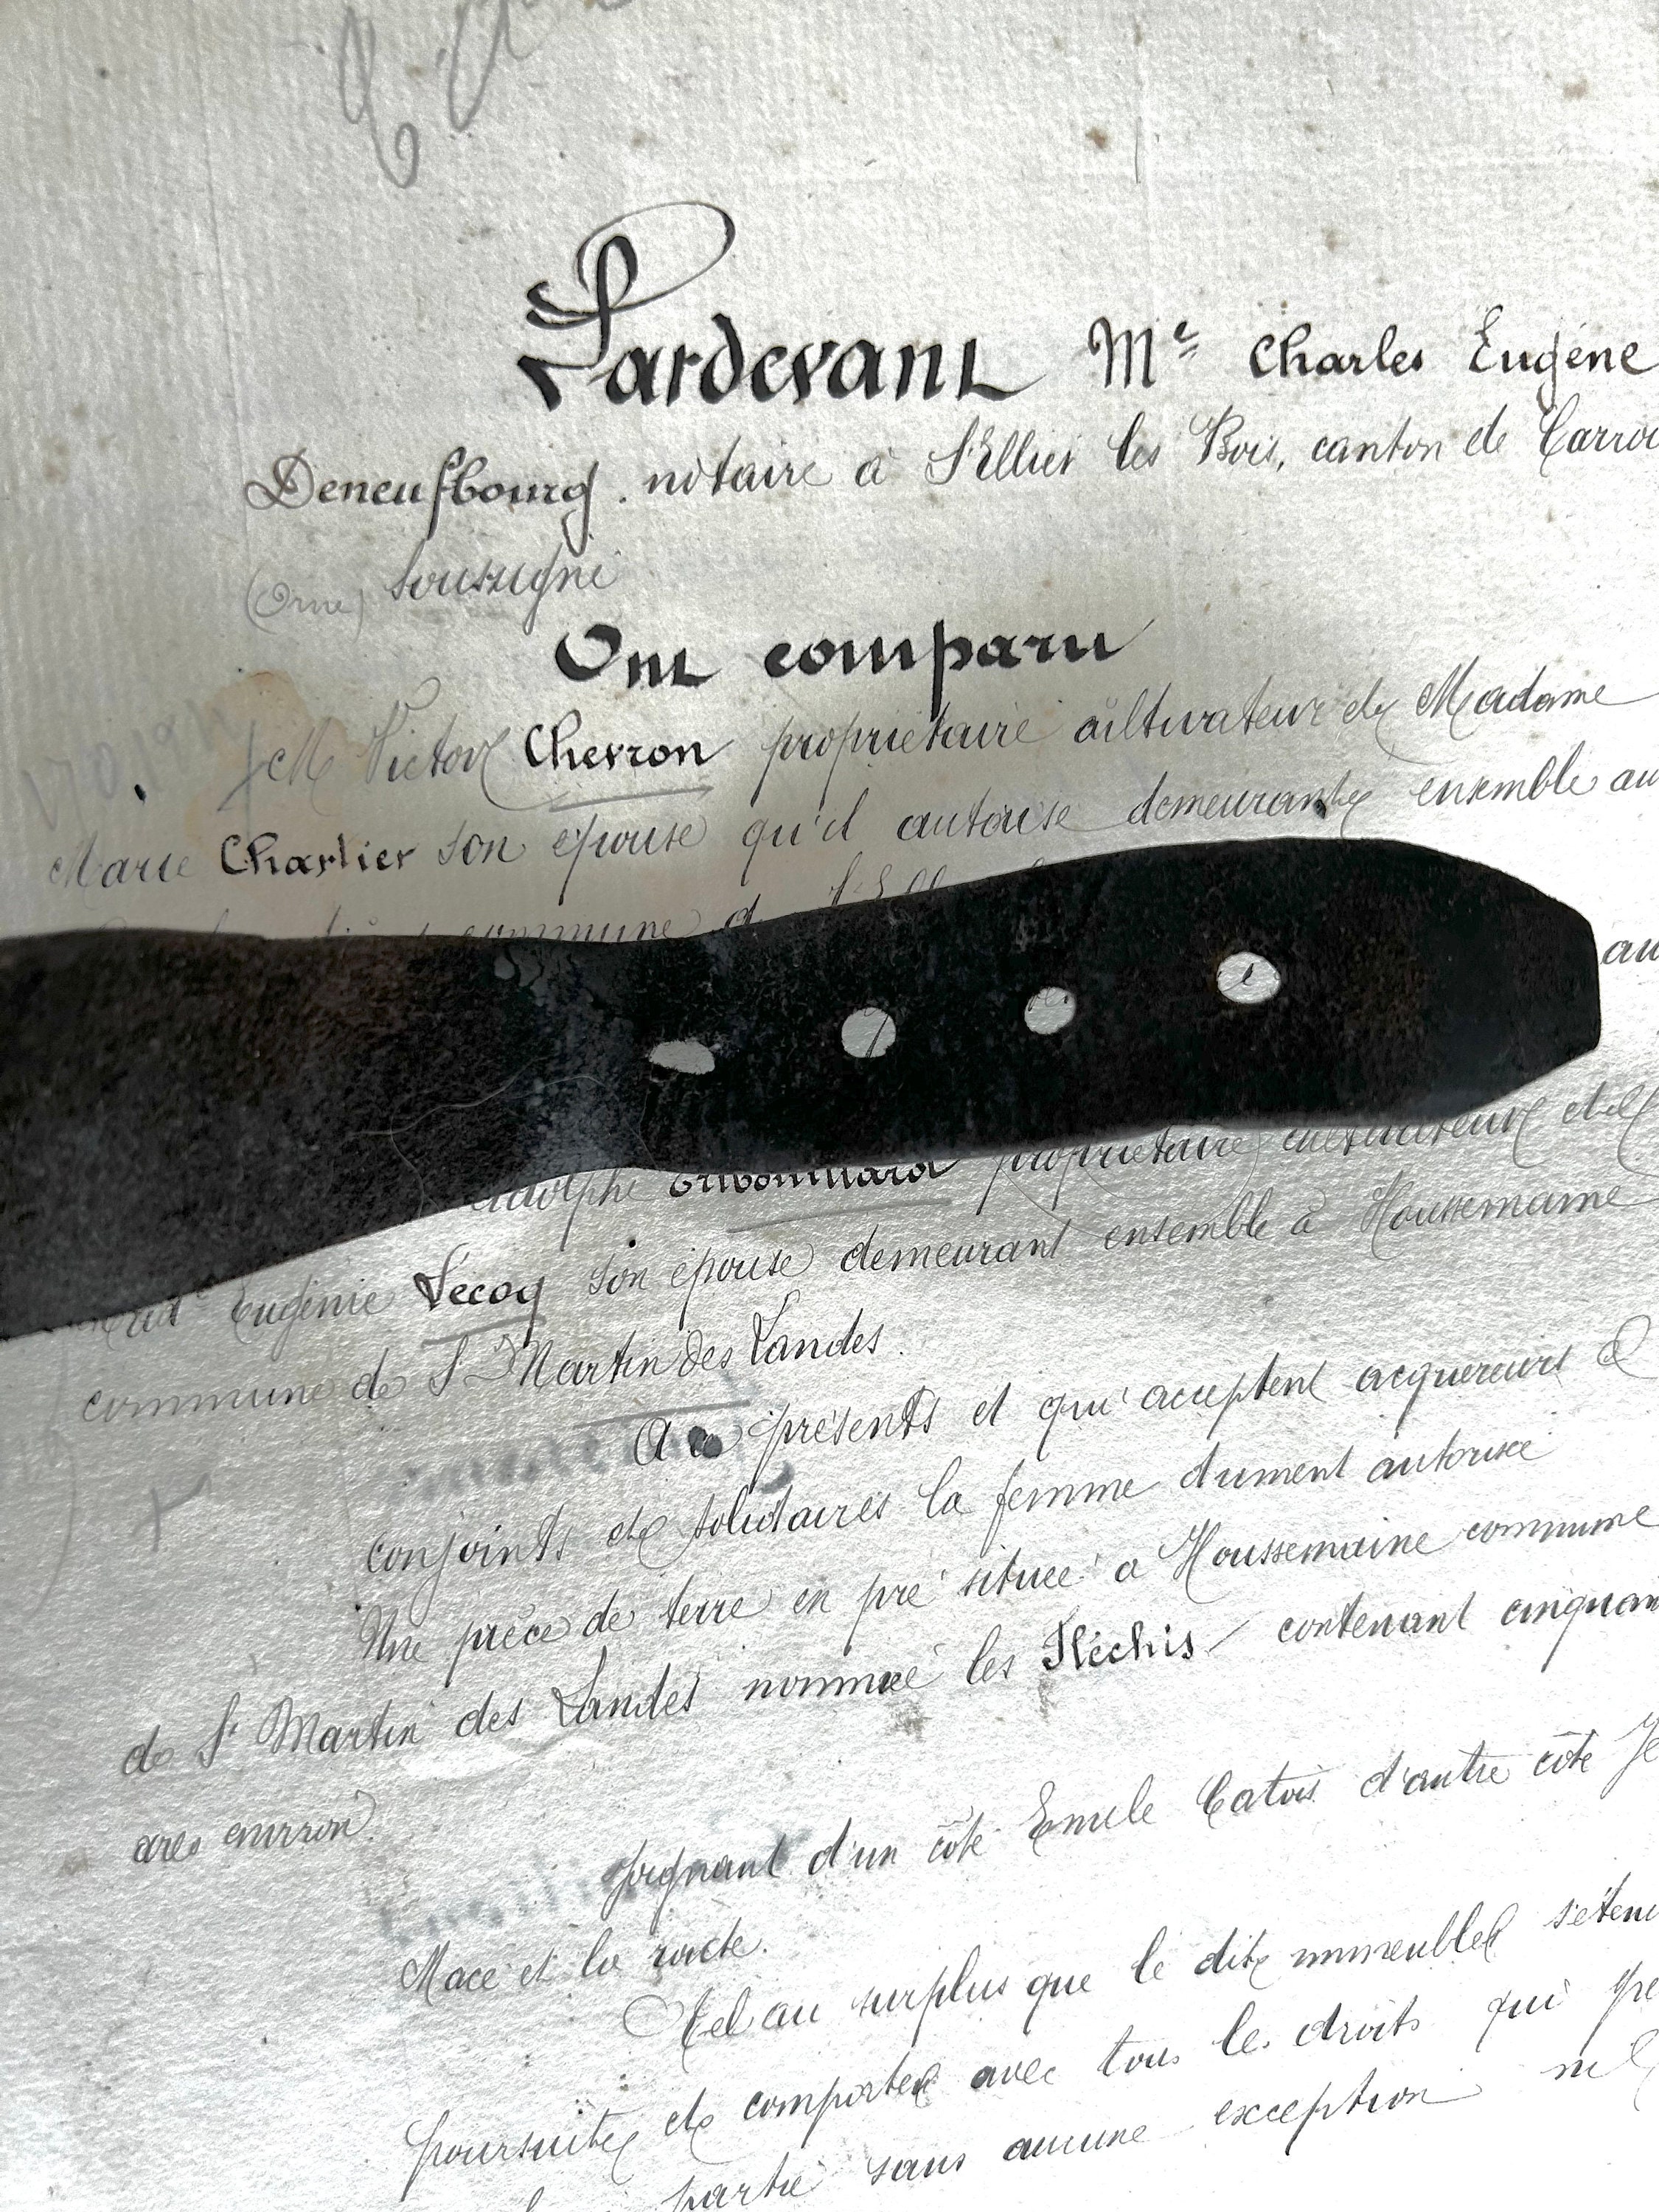 Pardevant Me Charles Eugène
Deneufbourg. notaire à St Ellier les Bois, canton de Carrou
(Orne) soussigné
Ont comparu
M Victor Chevron propriétaire cultivateur et Madame
Marie Charlier son épouse qu'il autorise demeurant ensemble au
commune d
au
adolphe propriétaire cultivateur et
Eugénie Lecoq son épouse demeurant ensemble à Houssemaine
commune de St Martin des Landes.
A ce présents et qui acceptent acquereurs
conjoints et solidaires la femme dument autorisée
Une pièce de terre en pré située à Houssemaine commune
de St Martin des Landes nommée les Fléchis contenant cinquan
ares environ
Joignant d'un côté Emile Catois d'autre côté Je
Macé et la route.
Tel au surplus que le dit immeuble s'éten
poursuit et comporte avec tous les droits qui pe
partie sans aucune exception ni